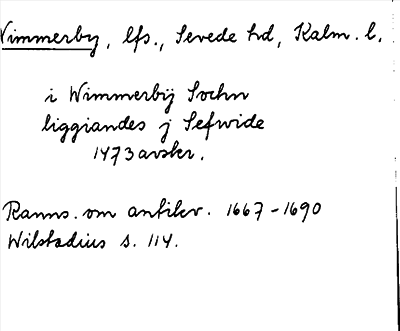 Vimmerby, lfs., Sevede hd, Kalm. l.
i Wimmerbÿ Sochn
liggiandes j Sefwide
1473 avskr.
Ranns. om antikv. 1667-1690
Wilstadius s. 114.